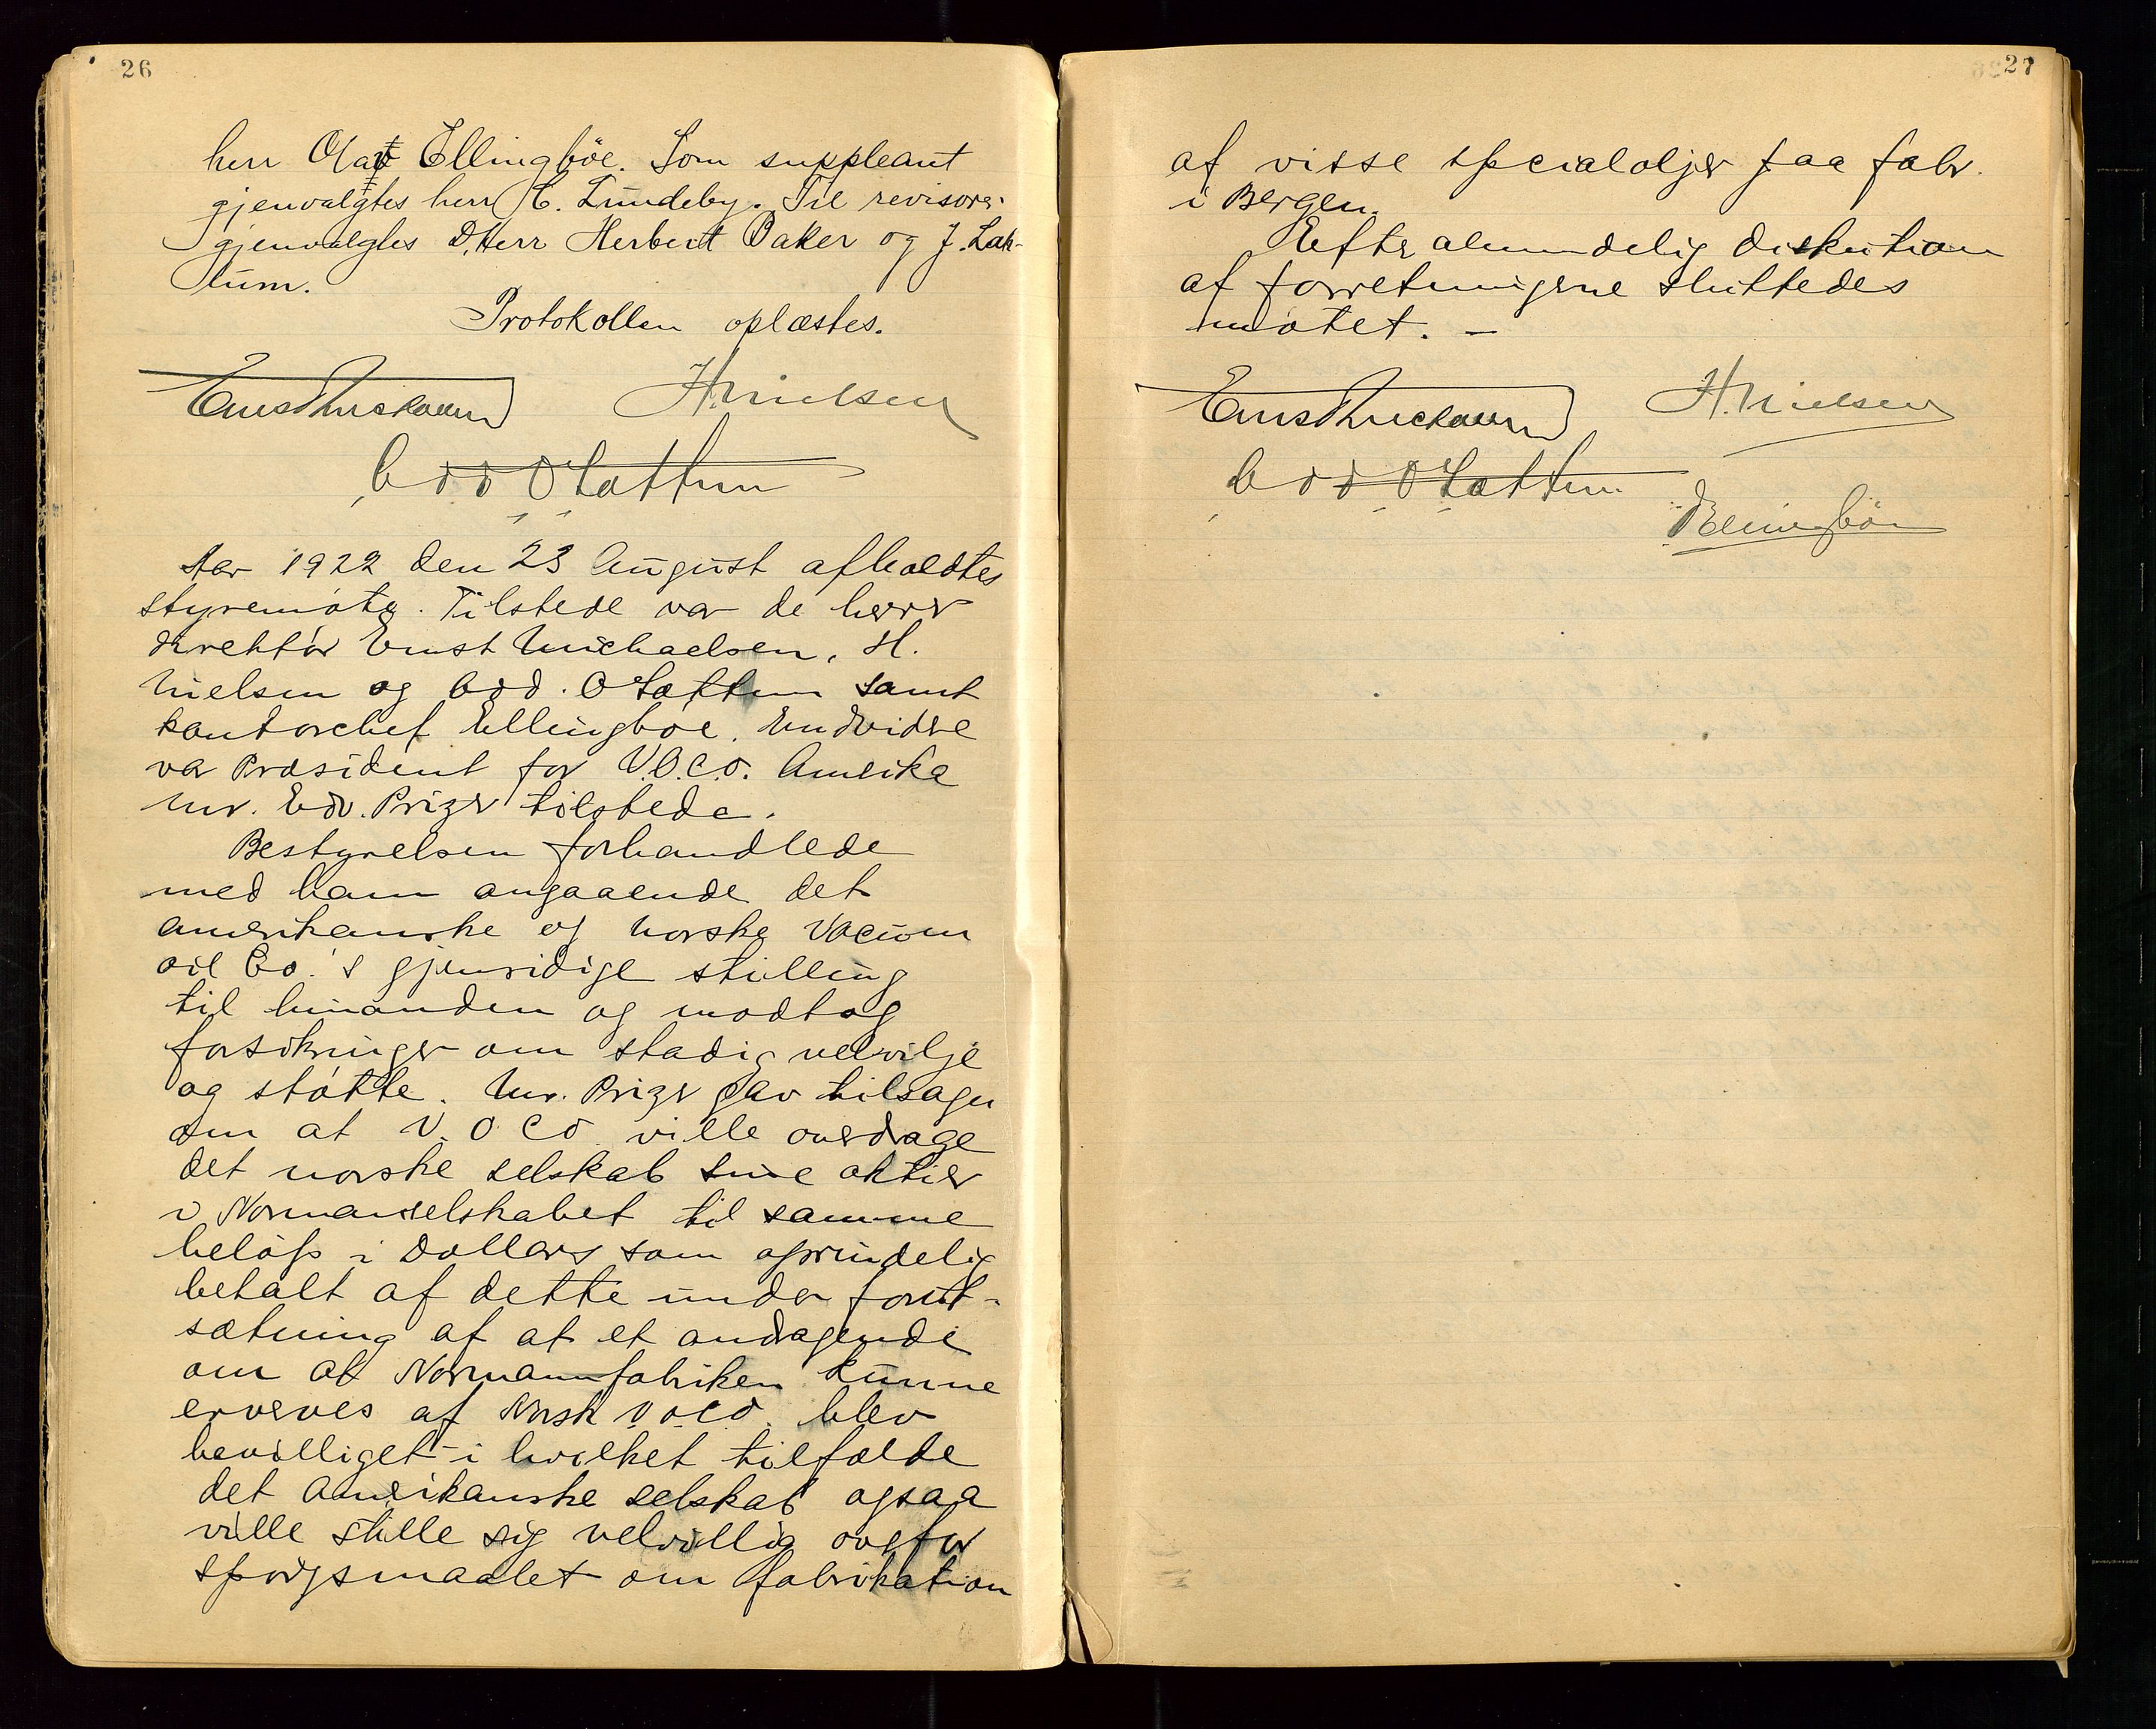 26
herr Olaf Ellingböe. Som suppleant
gjenvalgtes herr C. Lundeby. Til revisorer
gjenvalgtes D.Herr Herbert Baker og J. Lak-
lum.
Protokollen oplæstes.
Ernst Michaelsen H. Nielsen
Odd O Tottum
Aar 1922 den 23 August afholdtes
styremöte. Tilstede var de herrer
direktör Ernst Michaelsen, H.
Nielsen og Odd. O samt
kontorchef Ellingböe. Endvidre
var Præsident for V.O.C.O. Amerika
Mr. Edv. Prizer tilstede.
Bestyrelsen forhandlede
med ham angaaende det
amerikanske og norske Vacuum
oil Co.'s gjensidige stilling
til hinanden og modtog
forsikringer om stadig velvilje
og stötte. Mr. Prizer gav tilsagn
om at V.O.CO. ville overdrage
det norske selskab sine aktier
i Normanselskabet til samme
belöp i Dollars som oprindelig
betalt af dette under forut-
sætning af at et andragende
om at Normannfabriken kunne
erverves af Norsk V.O.C.O. blev
bevilliget i hvilket tilfælde
det Amerikanske selskab ogsaa
ville stille sig velvillig overfor
spörgsmaalet om fabrikation
27
af visse specialoljer paa fabr.
i Bergen.
Efter almindelig diskution
af forretningerne sluttedes
mötet. –
Ernst Michaelsen H. Nielsen
Odd O
Ellingböe